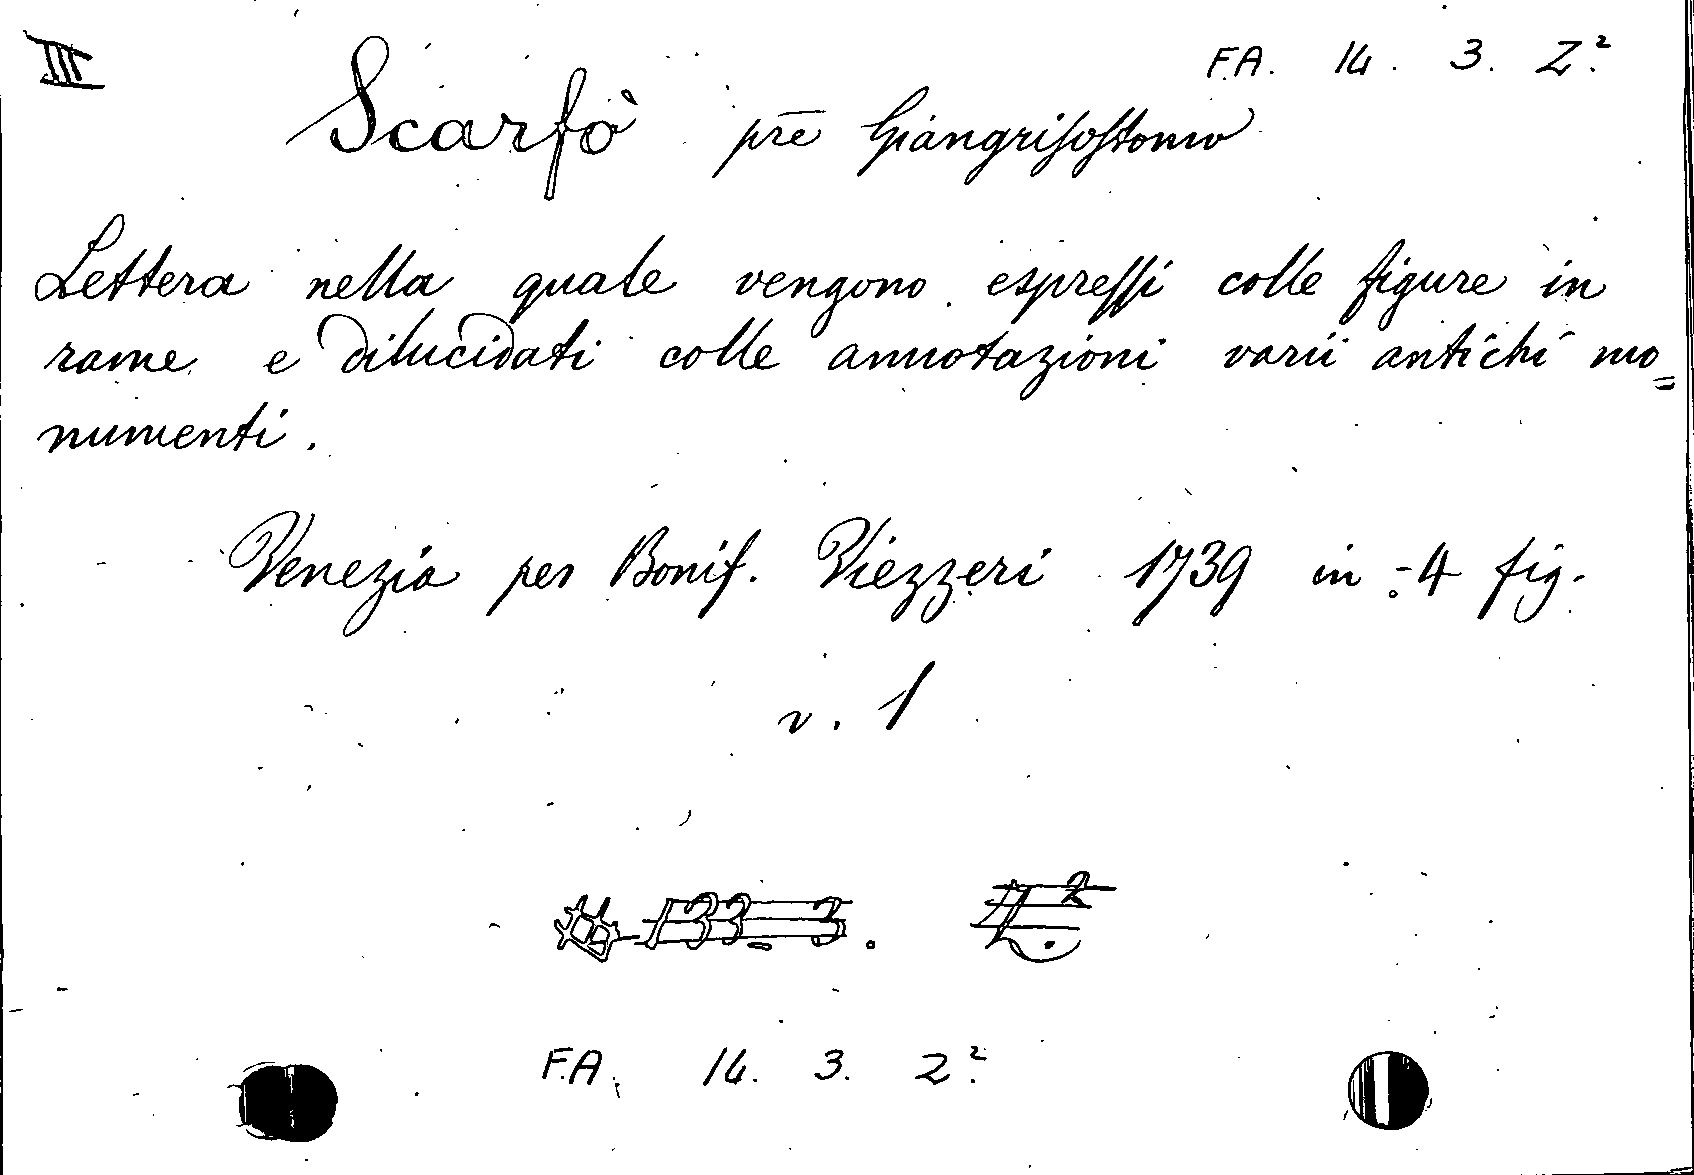 III
F.A. 14. 3. Z.²
Scarfò pre Giangrisostomo
Lettera nella quale vengono espressi colle figure in
rame e dilucidati colle annotazioni varii antichi mo=
numenti.
Venezia per Bonif. Viezzeri 1739 in-4 fig.
v. 1
133 3.
F.A. 14. 3. Z.²